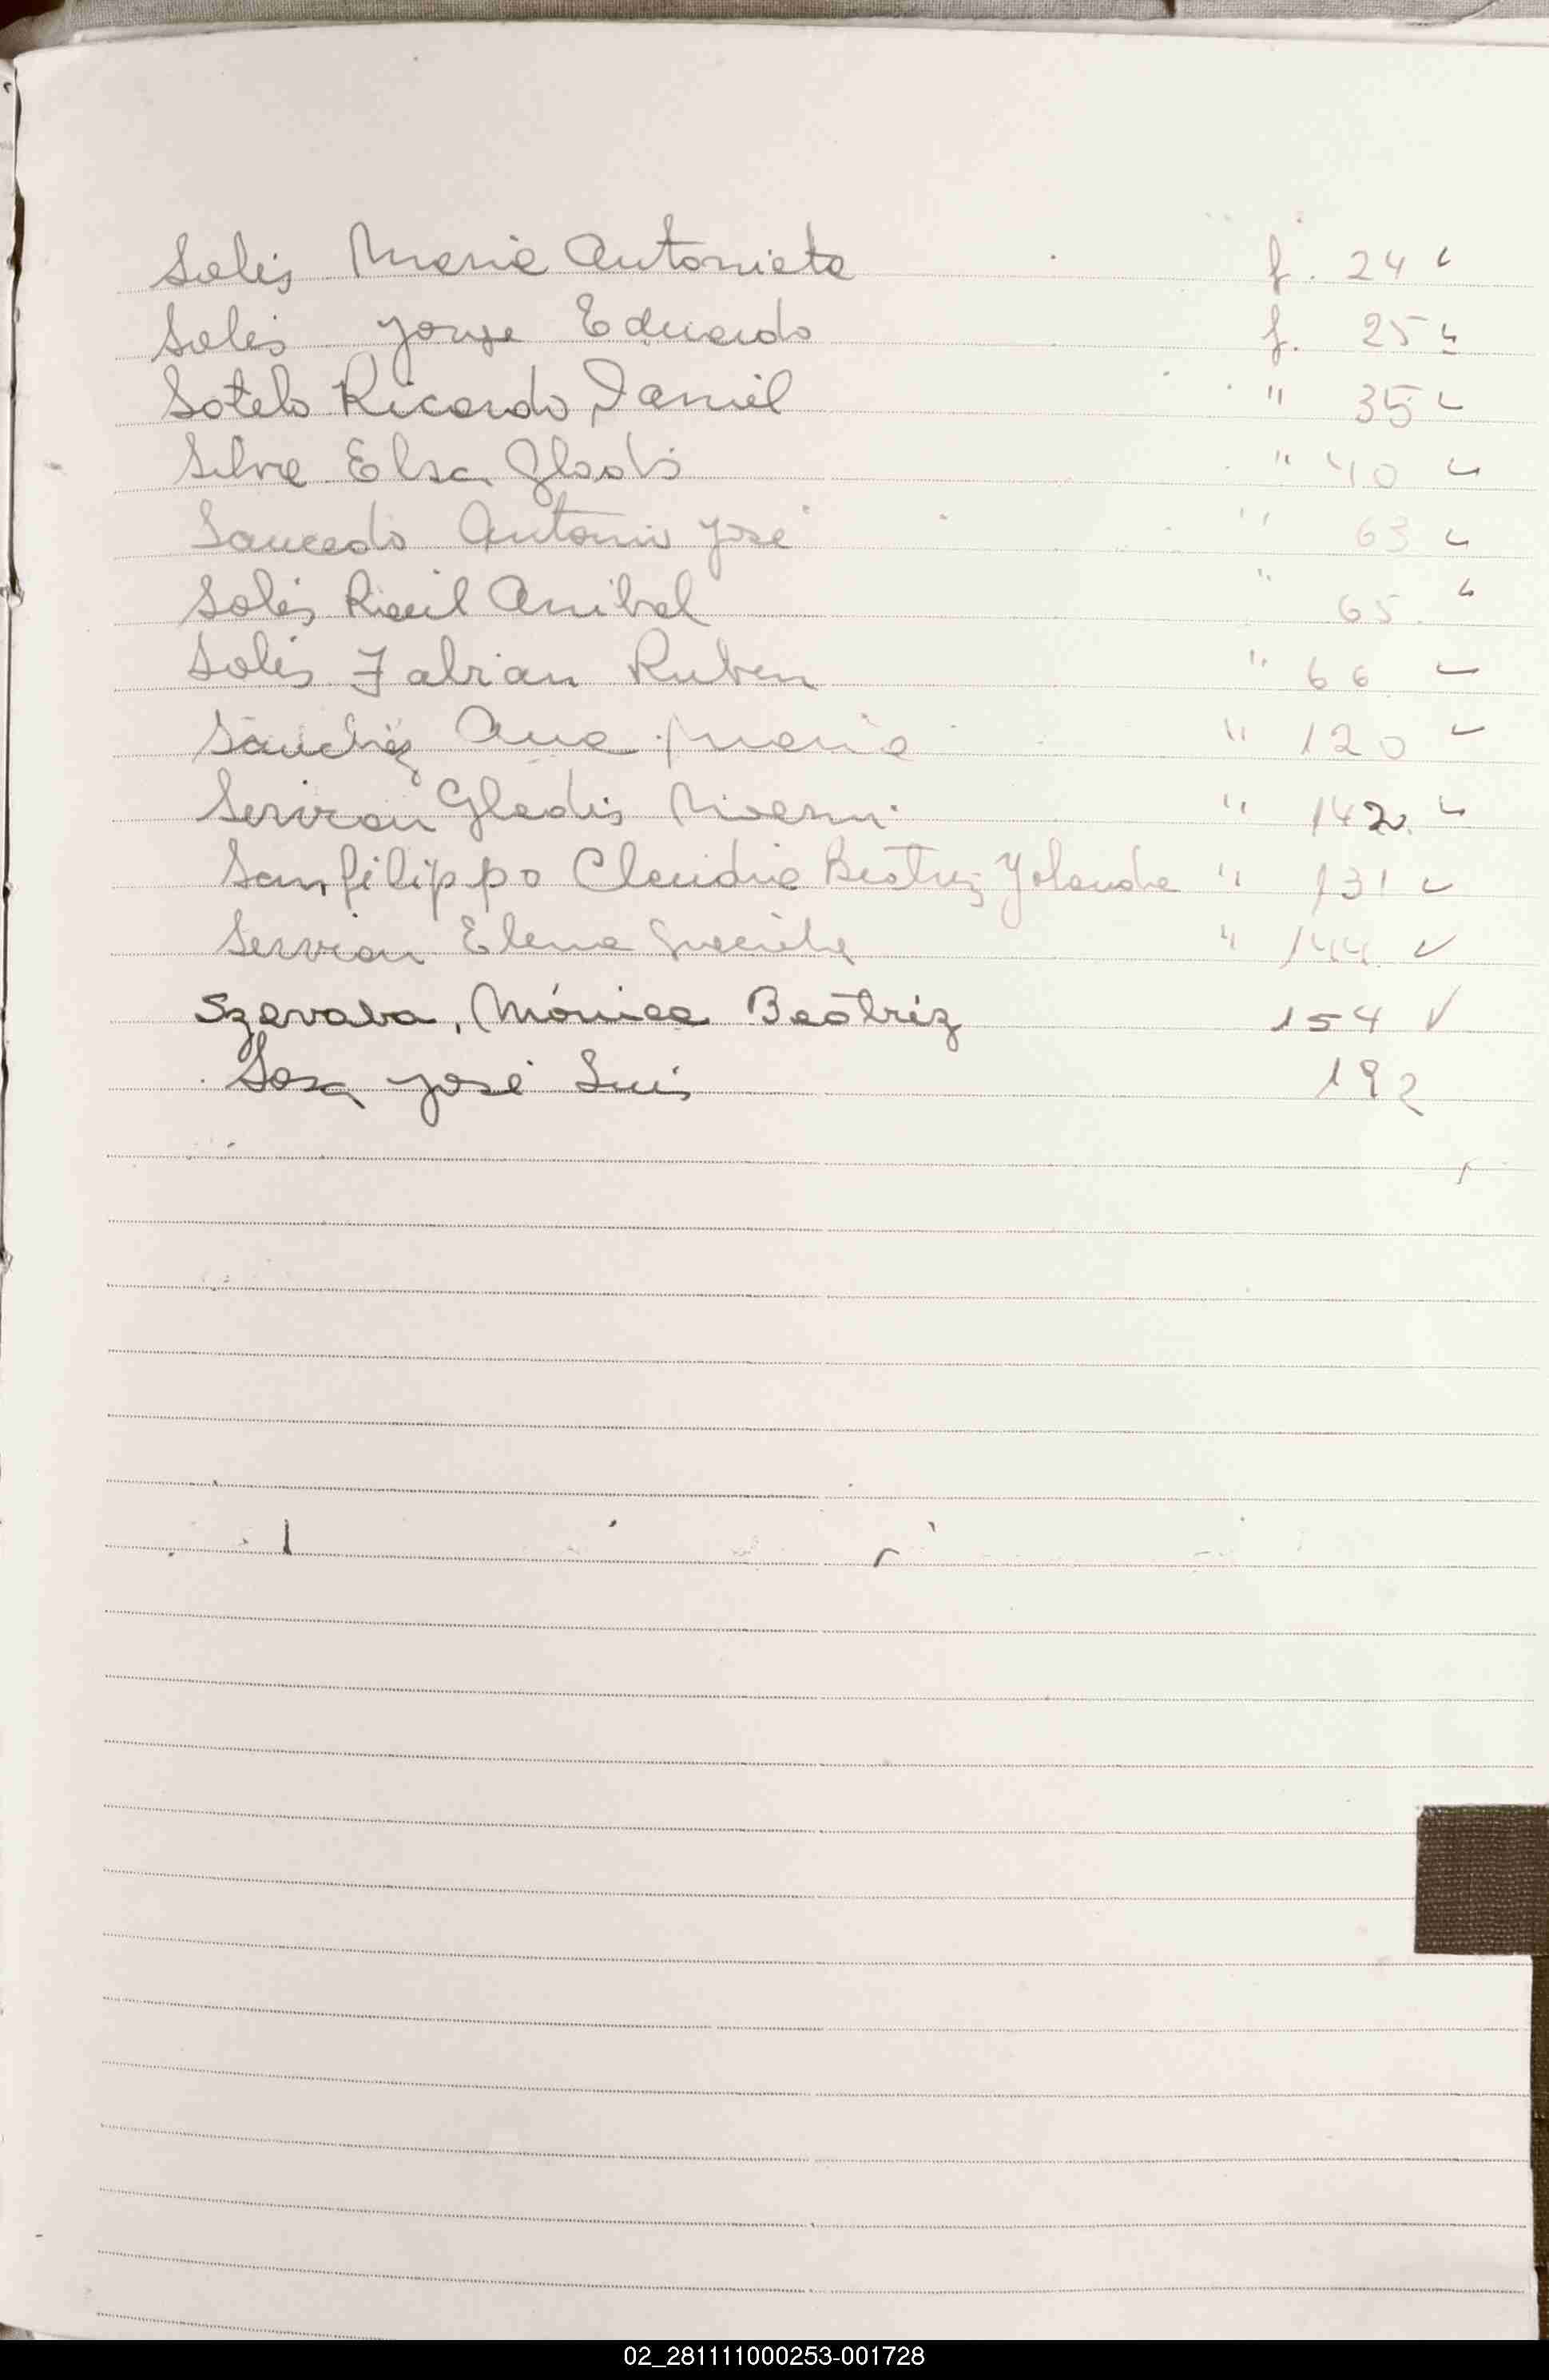 Solis Maria Antonieta f. 24
Solis Jorge Eduardo f. 25
Sotelo Ricardo Daniel " 35
Silva Elsa Gladis " 40
Saucedo Antonio José " 63
Solis Raul Anibal " 65
Solis Fabian Ruben " 66
Sánchez Ana Maria " 120
Servian Gladis Noemi " 142
Sanfilippo Claudia Beatriz Yolanda " 131
Servian Elena Graciela " 144
Szavava, Mónica Beatriz 154
Sosa José Luis 192
02_281111000253-001728